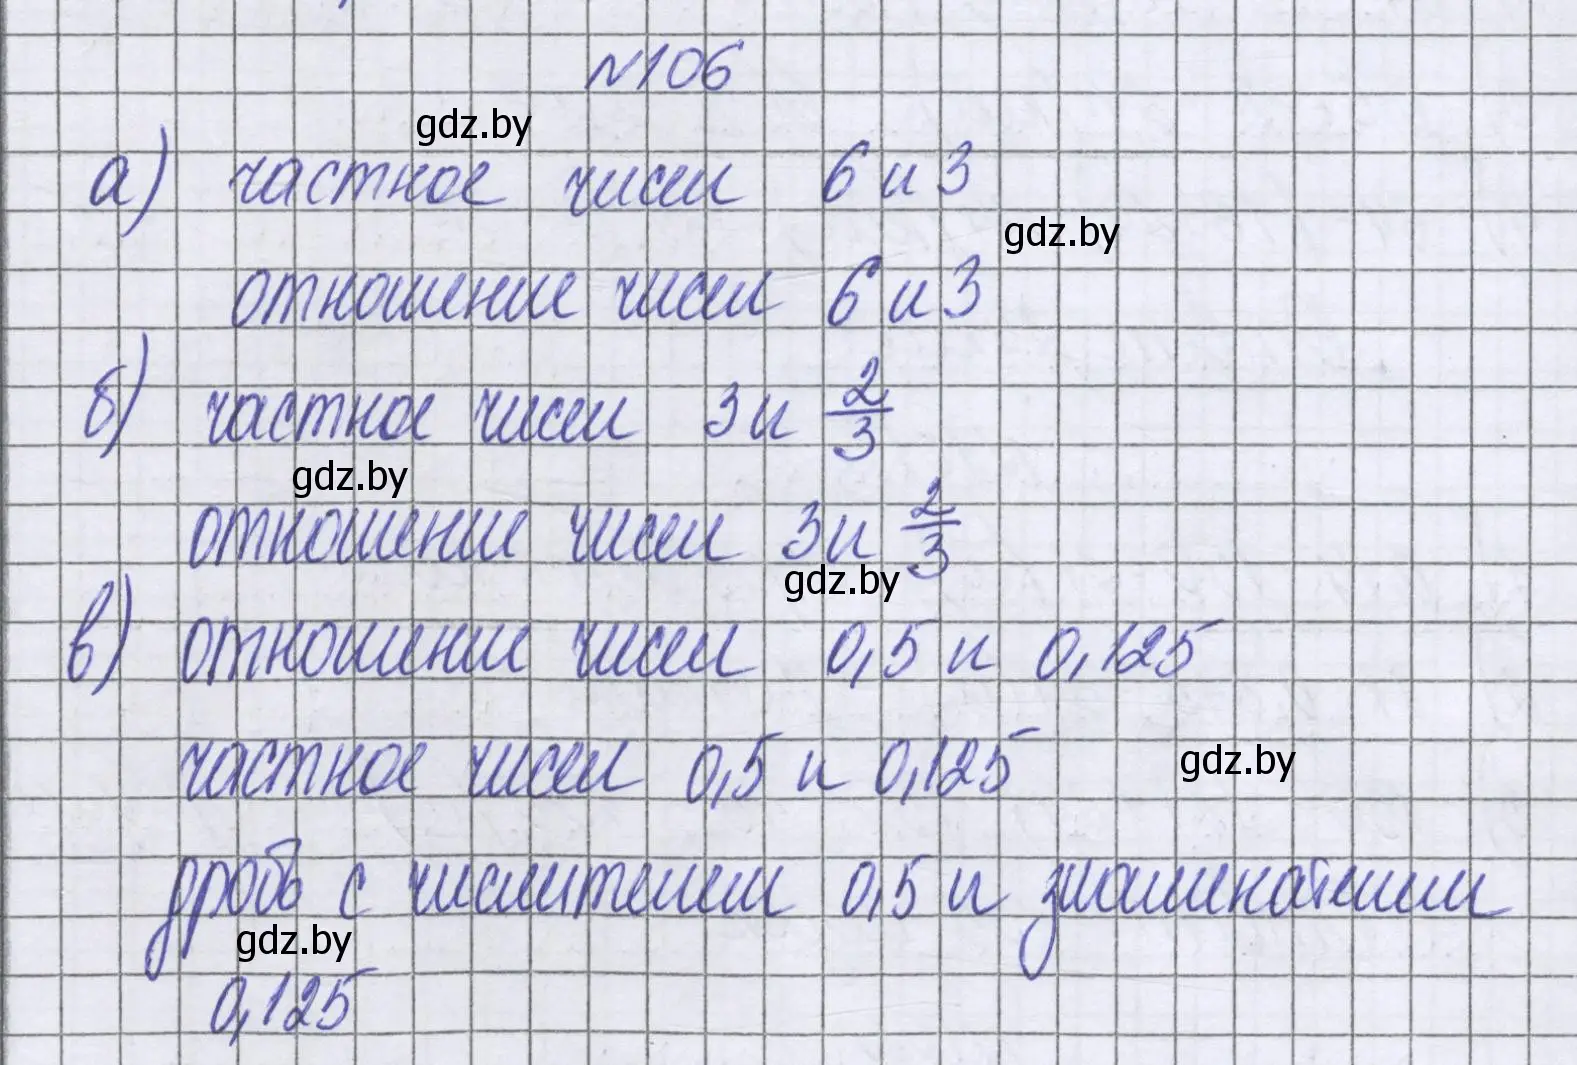 №106
gdz.by
а) частное чисел 6 и 3
gdz.by
отношение чисел 6 и 3
б) частное чисел 3 и 2/3
gdz.by
отношение чисел 3 и 2/3
gdz.by
в) отношение чисел 0,5 и 0,125
частное чисел 0,5 и 0,125
gdz.by
дробь с числителем 0,5 и знаменателем
gdz.by
0,125